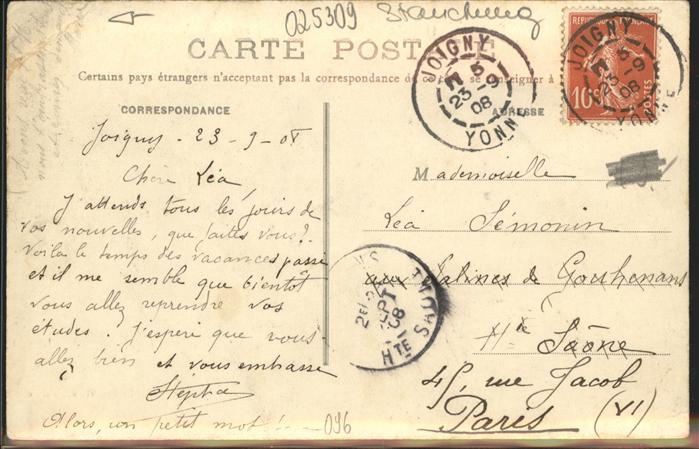 025309
CARTE POSTALE
Certains pays étrangers n'acceptant pas la correspondance de se renseigner à
CORRESPONDANCE
ADRESSE
Joigny 23-9-08
Chère Léa
J'attends tous les jours de
vos nouvelles, que faites vous?
Voilà le temps des vacances passé
et il me semble que bientôt
vous allez reprendre vos
études. J'espère que vous
allez bien et vous embrasse
Alors, un petit mot! 096
JOIGNY
23-9
08
YONNE
JOIGNY
23-9
08
YONNE
10c
POSTES
Mademoiselle
Léa Sémonin
aux Salines de Gouhenans
Hte Saône
45, rue Jacob
Paris (VI)
SEPT
08
HTE SAONE